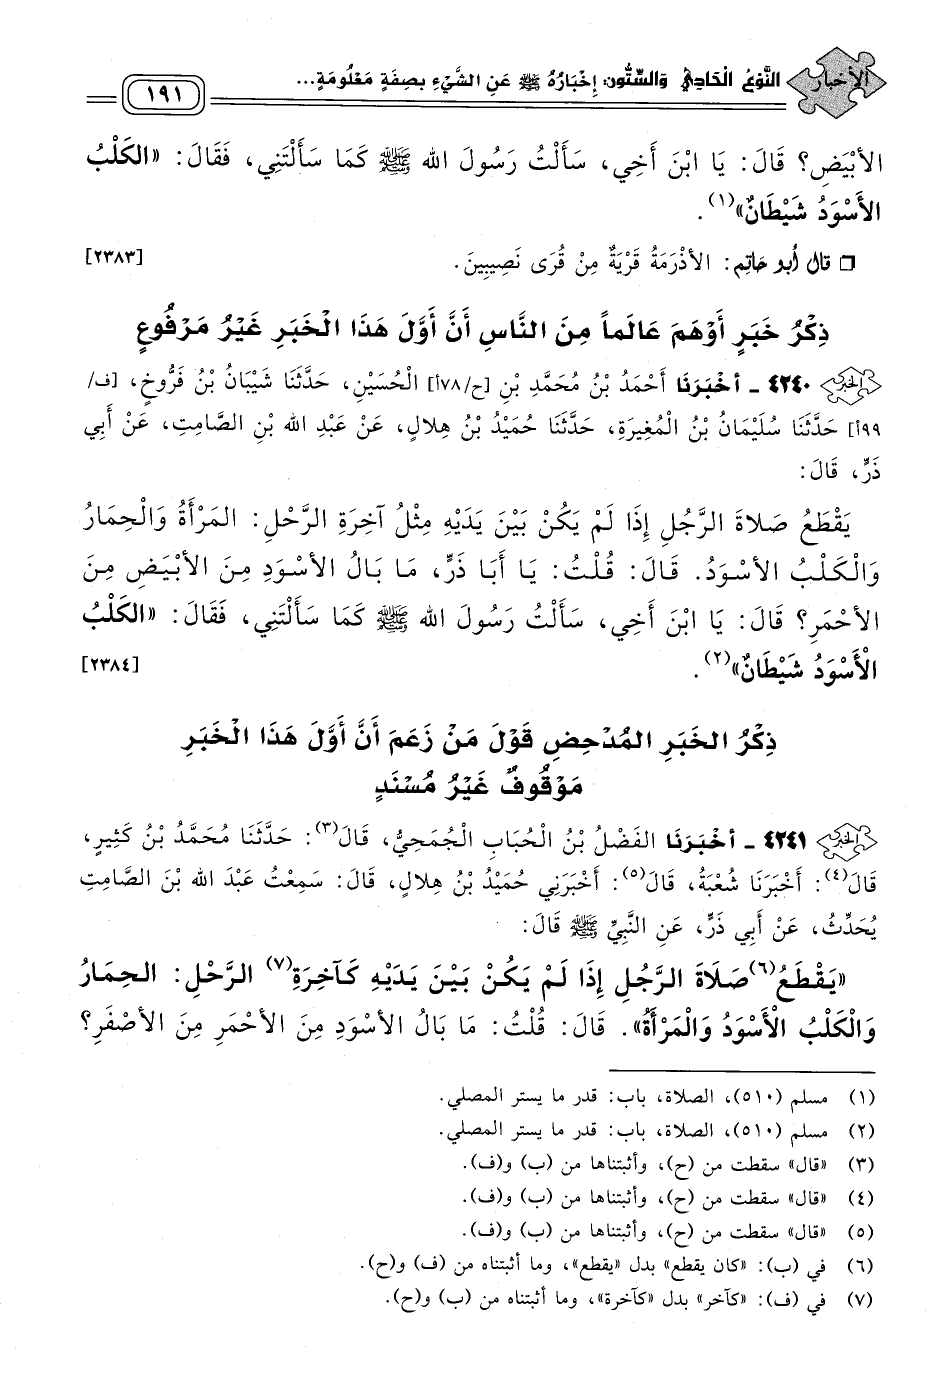 الأخبار
النَّوْعُ الْحَادِي وَالسِّتُّونَ: إِخْبَارُهُ ﷺ عَنِ الشَّيْءِ بِصِفَةٍ مَعْلُومَةٍ...
١٩١
الأَبْيَضِ؟ قَالَ: يَا ابْنَ أَخِي، سَأَلْتُ رَسُولَ الله ﷺ كَمَا سَأَلْتَنِي، فَقَالَ: «الكَلْبُ
الأَسْوَدُ شَيْطَانٌ»(١).
❏ قال أبو حاتِم: الأَذْرَمَةُ قَرْيَةٌ مِنْ قُرَى نَصِيبِينَ. [٢٣٨٣]
ذِكْرُ خَبَرٍ أَوْهَمَ عَالِماً مِنَ النَّاسِ أَنَّ أَوَّلَ هَذَا الْخَبَرِ غَيْرُ مَرْفُوعٍ
٤٢٤٠ - أَخْبَرَنَا أَحْمَدُ بْنُ مُحَمَّدِ بْنِ [ح/٧٨أ] الْحُسَيْنِ، حَدَّثَنَا شَيْبَانُ بْنُ فَرُّوخٍ، [ف/
٩٩أ] حَدَّثَنَا سُلَيْمَانُ بْنُ الْمُغِيرَةِ، حَدَّثَنَا حُمَيْدُ بْنُ هِلالٍ، عَنْ عَبْدِ الله بْنِ الصَّامِتِ، عَنْ أَبِي
ذَرٍّ، قَالَ:
يَقْطَعُ صَلاةَ الرَّجُلِ إِذَا لَمْ يَكُنْ بَيْنَ يَدَيْهِ مِثْلُ آخِرَةِ الرَّحْلِ: المَرْأَةُ وَالْحِمَارُ
وَالْكَلْبُ الأَسْوَدُ. قَالَ: قُلْتُ: يَا أَبَا ذَرٍّ، مَا بَالُ الأَسْوَدِ مِنَ الأَبْيَضِ مِنَ
الأَحْمَرِ؟ قَالَ: يَا ابْنَ أَخِي، سَأَلْتُ رَسُولَ الله ﷺ كَمَا سَأَلْتَنِي، فَقَالَ: «الكَلْبُ
الْأَسْوَدُ شَيْطَانٌ»(٢). [٢٣٨٤]
ذِكْرُ الخَبَرِ المُدْحِضِ قَوْلَ مَنْ زَعَمَ أَنَّ أَوَّلَ هَذَا الْخَبَرِ
مَوْقُوفٌ غَيْرُ مُسْنَدٍ
٤٢٤١ - أَخْبَرَنَا الفَضْلُ بْنُ الْحُبَابِ الْجُمَحِيُّ، قَالَ(٣): حَدَّثَنَا مُحَمَّدُ بْنُ كَثِيرٍ،
قَالَ(٤): أَخْبَرَنَا شُعْبَةُ، قَالَ(٥): أَخْبَرَنِي حُمَيْدُ بْنُ هِلالٍ، قَالَ: سَمِعْتُ عَبْدَ الله بْنَ الصَّامِتِ
يُحَدِّثُ، عَنْ أَبِي ذَرٍّ، عَنِ النَّبِيِّ ﷺ قَالَ:
«يَقْطَعُ(٦) صَلَاةَ الرَّجُلِ إِذَا لَمْ يَكُنْ بَيْنَ يَدَيْهِ كَآخِرَةِ(٧) الرَّحْلِ: الحِمَارُ
وَالْكَلْبُ الْأَسْوَدُ وَالْمَرْأَةُ». قَالَ: قُلْتُ: مَا بَالُ الأَسْوَدِ مِنَ الأَحْمَرِ مِنَ الأَصْفَرِ؟
(١) مسلم (٥١٠)، الصلاة، باب: قدر ما يستر المصلي.
(٢) مسلم (٥١٠)، الصلاة، باب: قدر ما يستر المصلي.
(٣) «قال» سقطت من (ح)، وأثبتناها من (ب) و(ف).
(٤) «قال» سقطت من (ح)، وأثبتناها من (ب) و(ف).
(٥) «قال» سقطت من (ح)، وأثبتناها من (ب) و(ف).
(٦) في (ب): «كان يقطع» بدل «يقطع»، وما أثبتناه من (ف) و(ح).
(٧) في (ف): «كآخر» بدل «كآخرة»، وما أثبتناه من (ب) و(ح).